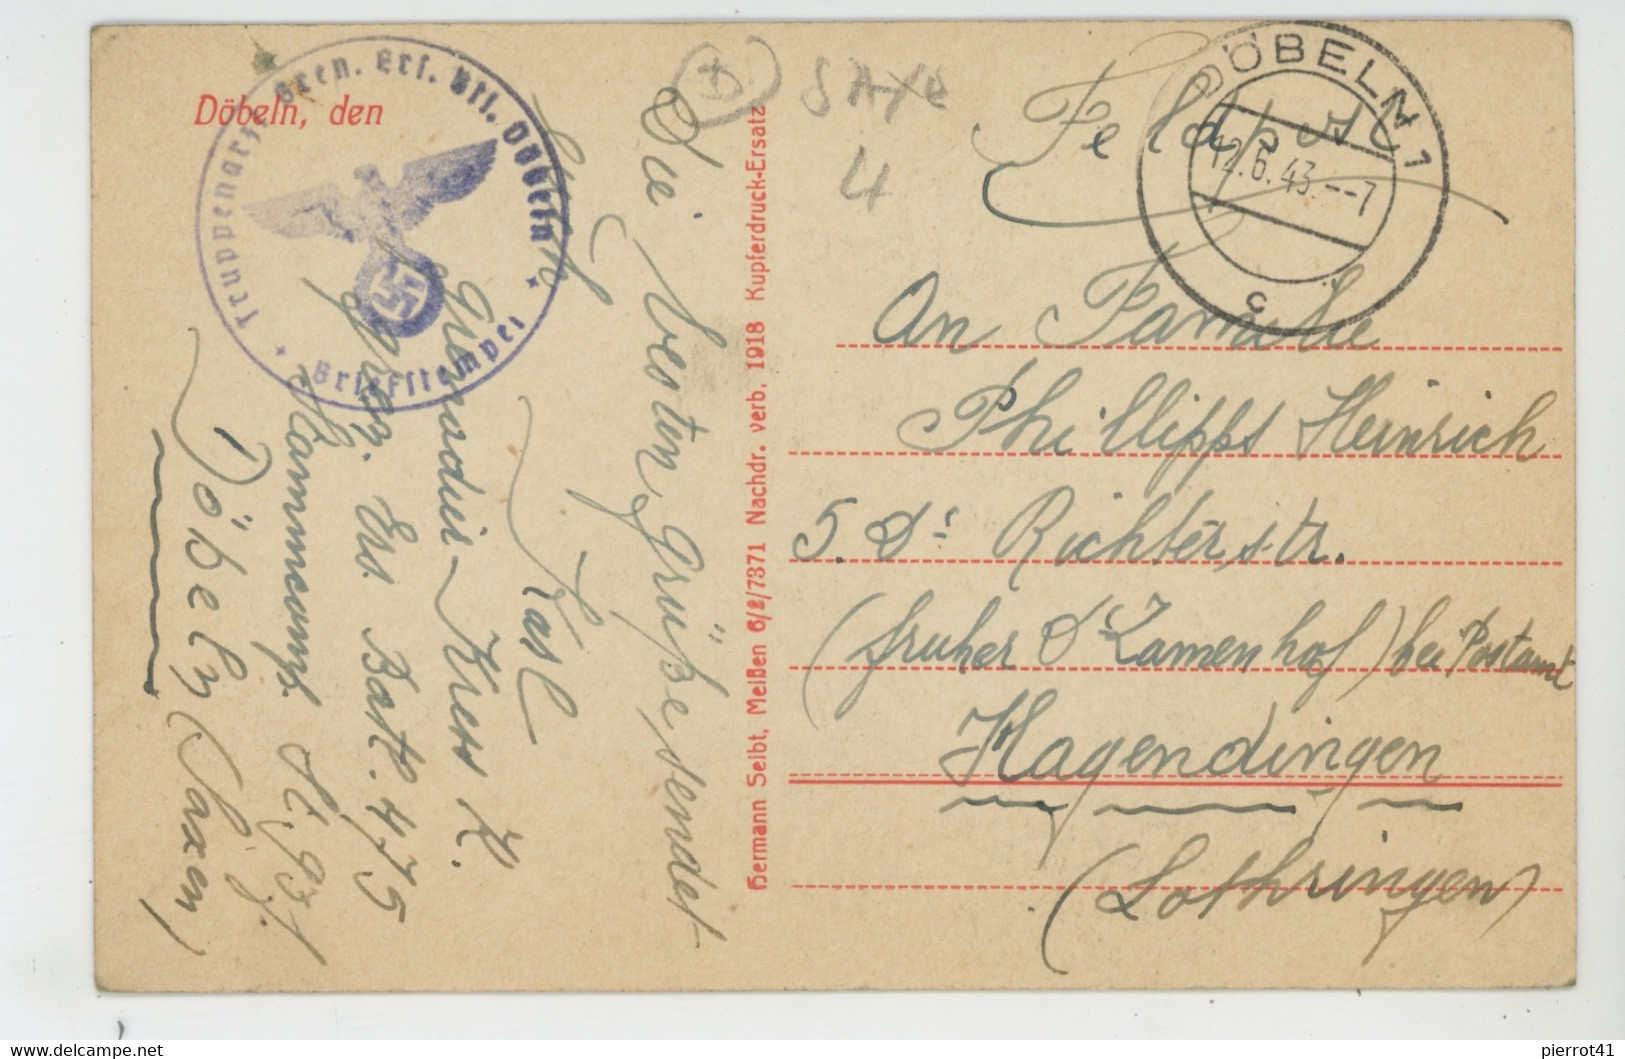 Döbeln, den
Truppenarzt Gren. Ers. Btl. Döbeln
Briefstempel
DÖBELN 1
12.6.43.--7
c
SAXE
4
Feldpost
An Familie
Phillipps Heinrich
5. Richterstr.
(fruher Zamenhof) bei Postamt
Hagendingen
(Lothringen)
Hermann Seibt, Meißen 6/2/7371 Nachdr. verb. 1918 Kupferdruck-Ersatz
Die besten Grüße sendet
Euch
Grenadier Kress K.
Gren. Ers. Batl. 475
Döbeln (Saxen)